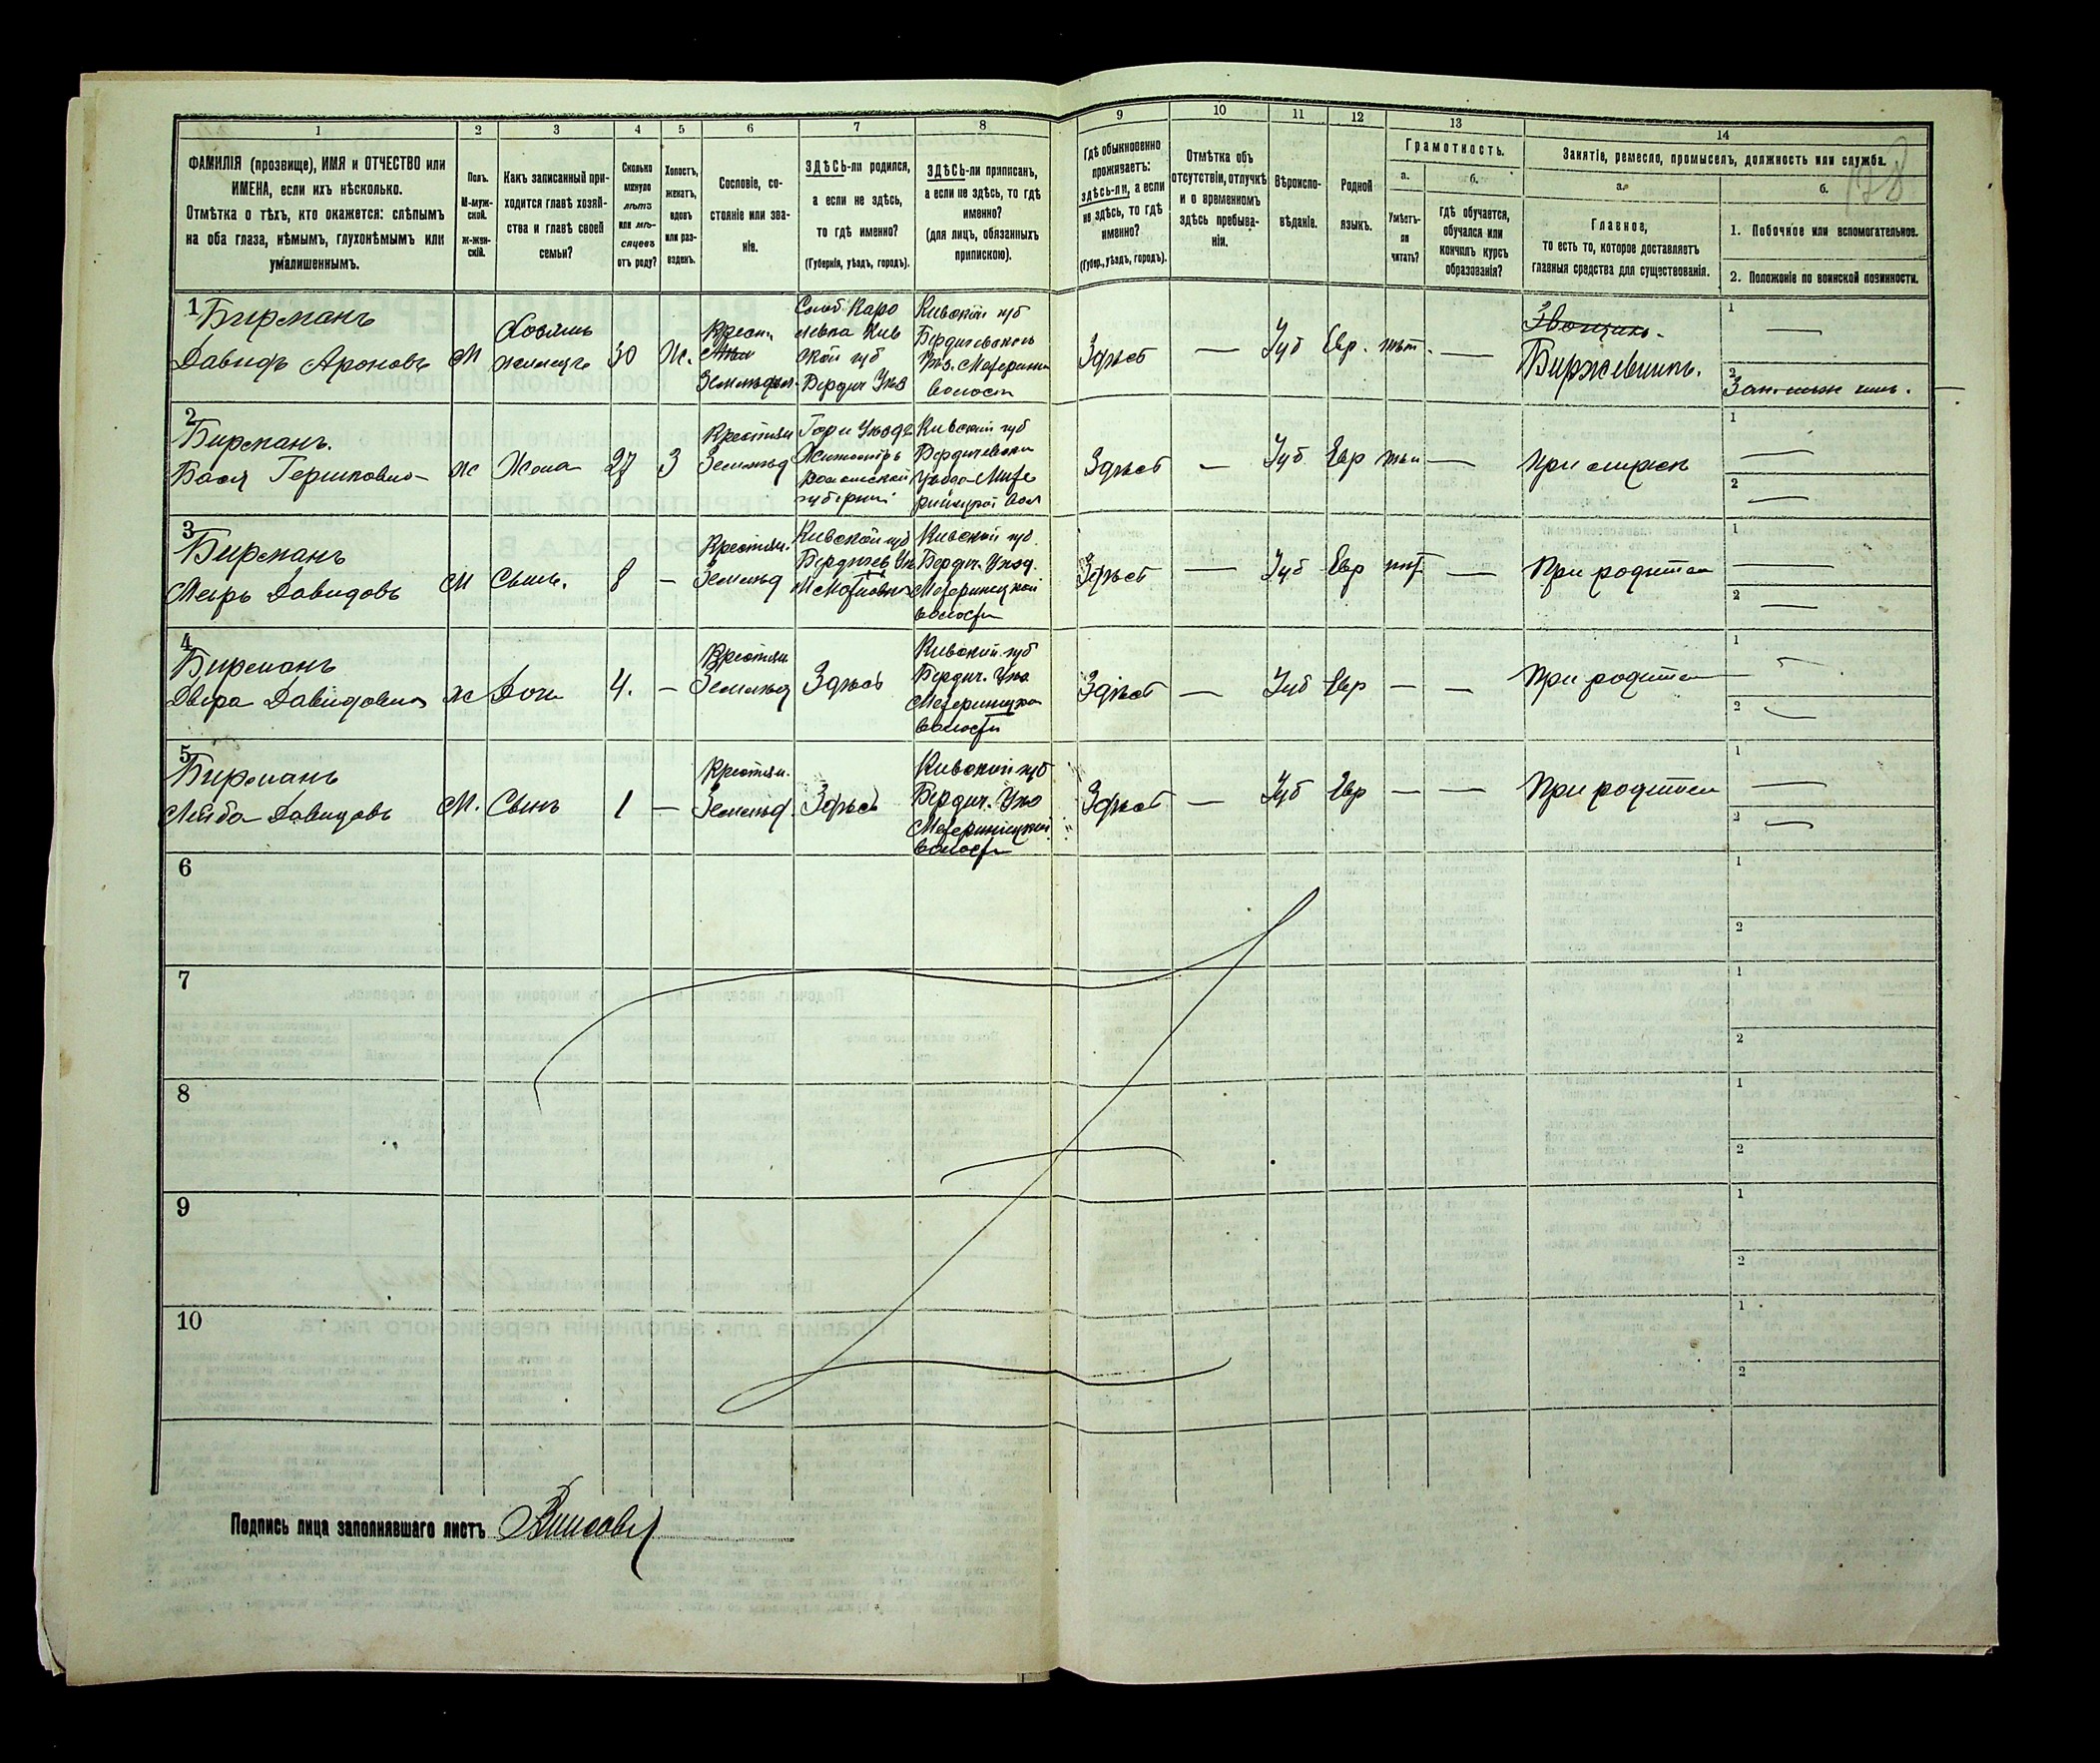 1
2
3
4
5
6
7
8
9
10
11
12
13
14
ФАМИЛІЯ (прозвище), ИМЯ и ОТЧЕСТВО или
ИМЕНА, если ихъ нѣсколько.
Отмѣтка о тѣхъ, кто окажется: слѣпымъ
на оба глаза, нѣмымъ, глухонѣмымъ или
умалишеннымъ.
Полъ.
М-муж-
ской.
Ж-жен-
скій.
Какъ записанный при-
ходится главѣ хозяй-
ства и главѣ своей
семьи?
Сколько
минуло
лѣтъ
или мѣ-
сяцевъ
отъ роду?
Холостъ,
женатъ,
вдовъ
или раз-
веденъ.
Сословіе, со-
стояніе или зва-
ніе.
ЗДѢСЬ-ли родился,
а если не здѣсь,
то гдѣ именно?
(Губернія, уѣздъ, городъ).
ЗДѢСЬ-ли приписан,
а если не здѣсь, то гдѣ
именно?
(для лицъ, обязанныхъ
припискою).
Гдѣ обыкновенно
проживаетъ:
здѣсь-ли, а если
не здѣсь, то гдѣ
именно?
(Губер., уѣздъ, городъ).
Отмѣтка объ
отсутствіи, отлучкѣ
и о временномъ
здѣсь пребыва-
ніи.
Вѣроиспо-
вѣданіе.
Родной
языкъ.
Грамотность.
а.
Умѣетъ-
ли
читать?
б.
Гдѣ обучается,
обучался или
кончилъ курсъ
образованія?
Занятіе, ремесло, промыселъ, должность или служба.
а.
Главное,
то есть то, которое доставляетъ
главныя средства для существованія.
б.
1. Побочное или вспомогательное.
2. Положеніе по воинской повинности.
128
1 Бирманъ
Давидъ Ароновъ
М
Хозяинъ
30
Ж.
Крест.
Слоб Каро
Кив
ской губ
Бердич Уѣз
Кивской губ
Бердичевскаго
волости
Здѣсь
Іуд
Евр.
Биржевикъ.
1
2
2
Бирманъ.
Бася Гершковна
ж
Жена
27
З
Крестьян
Земляд
Житомірь
губерніи
Кивской губ
Бердичевском
Здѣсь
Іуд
Евр
При мужѣ
1
2
3
Бирманъ
Меирь Давидовъ
М
Сынъ.
8
Крестьян.
Земляд
Кивской губ
Бердичев Уѣ
Кивской губ.
Бердич. Уѣзд.
волости
Здѣсь
Іуд
Евр
При родител
1
2
4
Бирманъ
Двера Давидовна
ж
Доч
4.
Крестьян
Земляд
Здѣсь
Кивской губ
Бердич. Уѣз
волости
Здѣсь
Іуд
Евр
При родител
1
2
5
Бирманъ
Лейба Давидовъ
М.
Сынъ
1
Крестьян.
Земляд.
Здѣсь
Кивской губ
Бердич. Уѣз
волости
Здѣсь
Іуд
Евр
При родител
1
2
6
1
2
7
1
2
8
1
2
9
1
2
10
1
2
Подпись лица заполнявшаго листъ